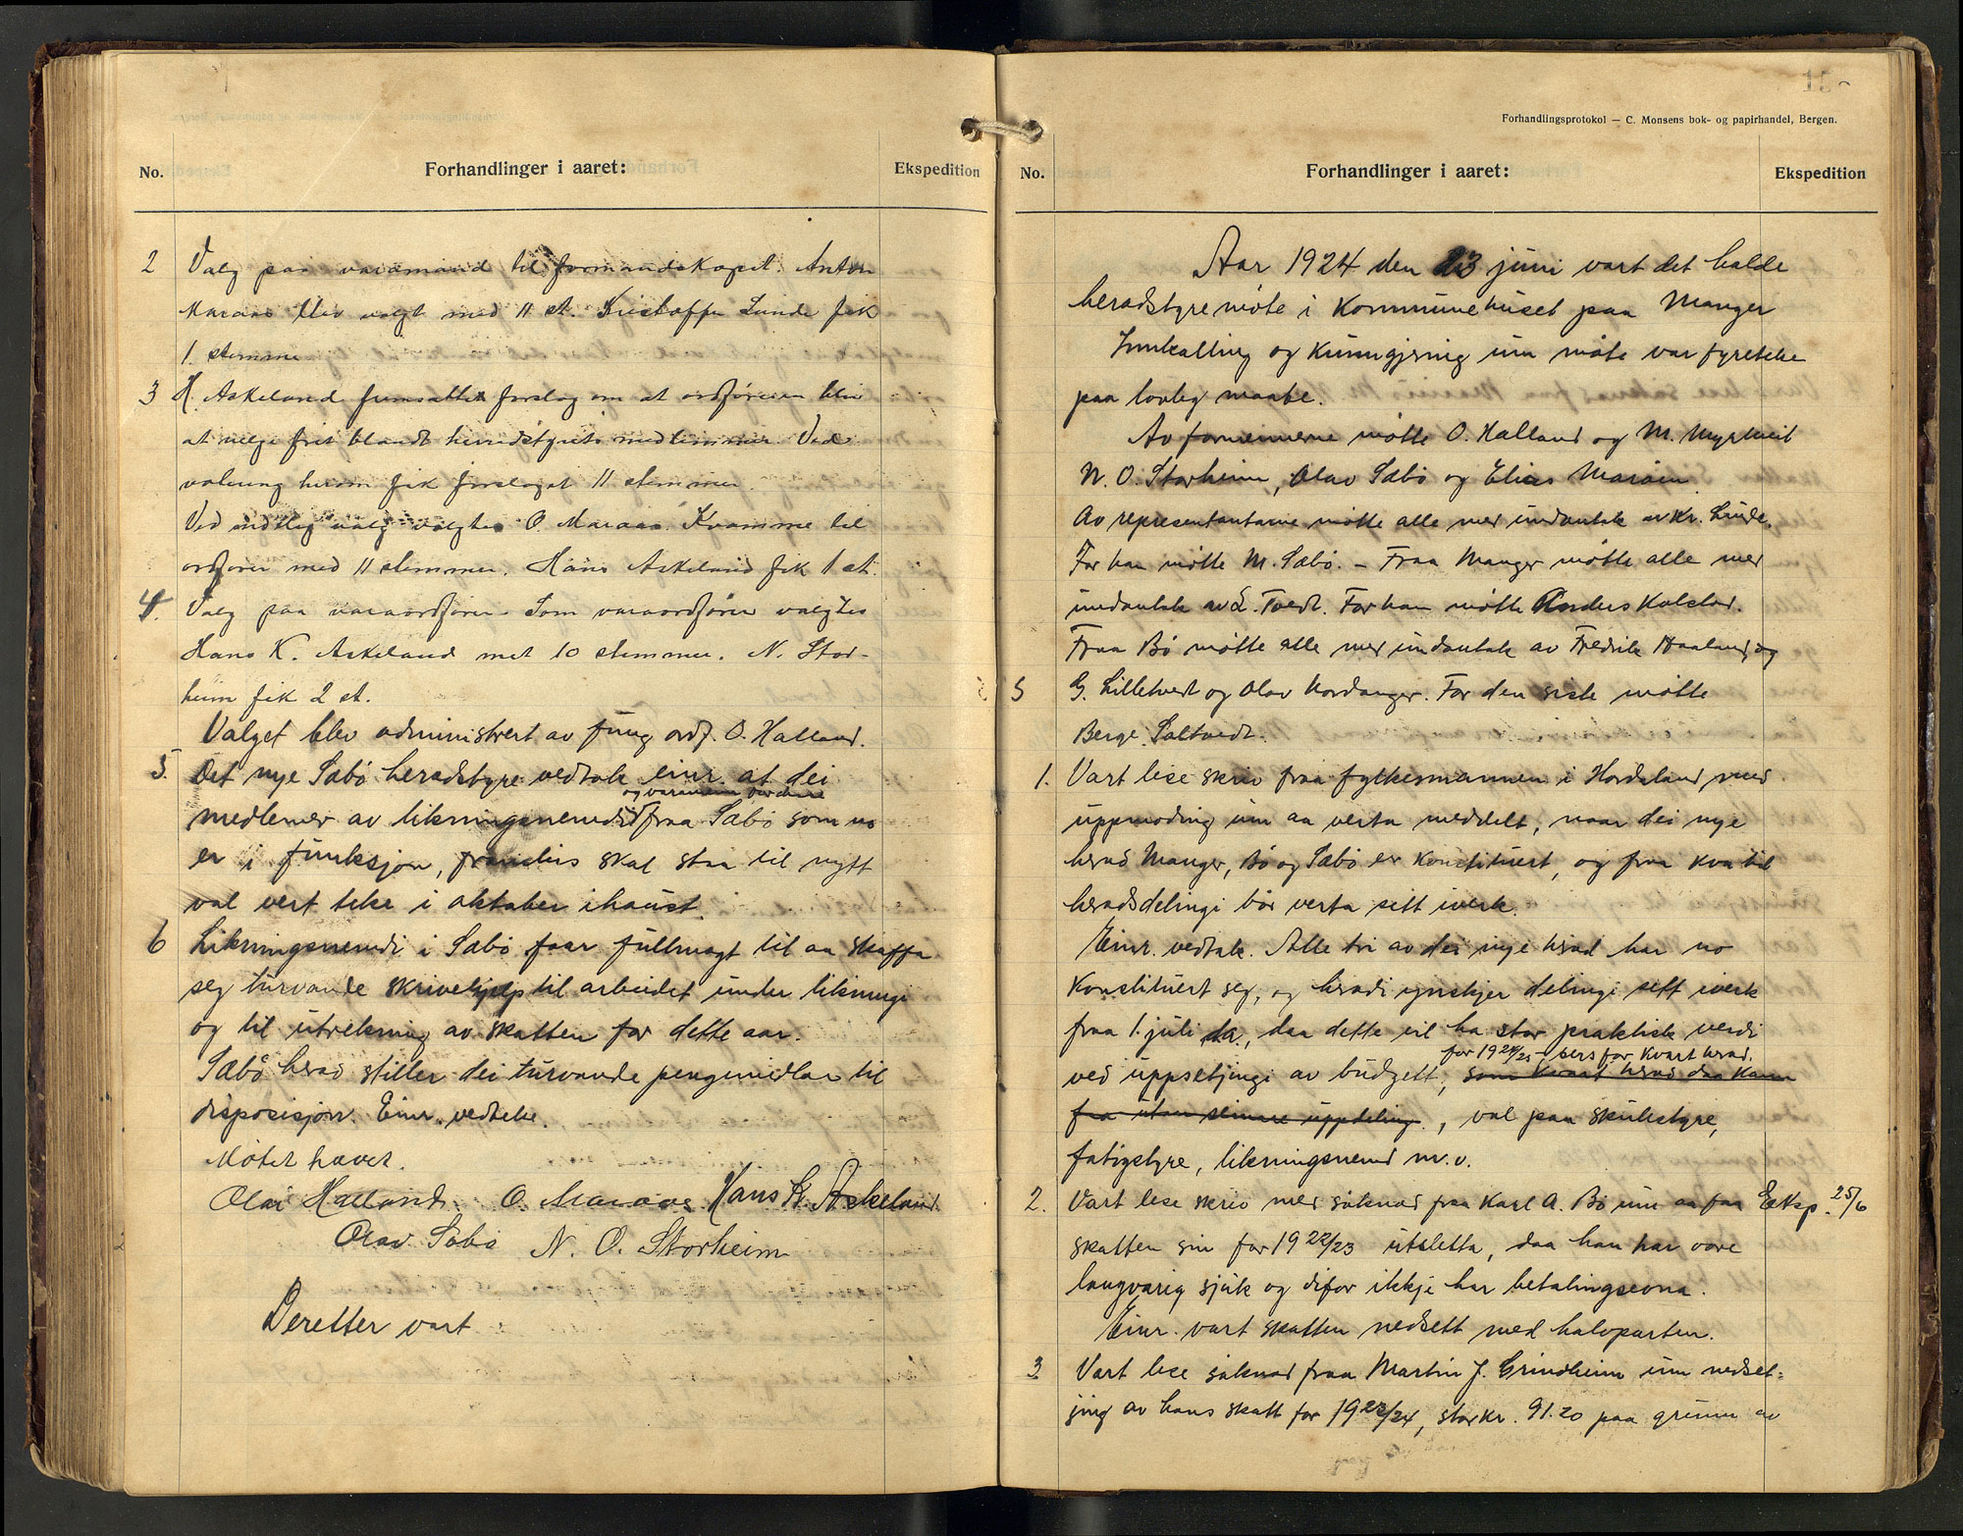 No.
Forhandlinger i aaret:
Ekspedition
2 Valg paa varamand til formandskapet. Anton
Maraas blev valgt med 11 st. Kristoffer Lunde fik
1 stemme
3 H. Askeland fremsatte forslag om at ordføreren blir
at velge frit blandt herredstyrets medlemmer. Ved
votering herom fik forslaget 11 stemmer.
Ved skriftlig valg valgtes O Maraas Kvamme til
ordfører med 11 stemmer. Hans Askeland fik 1 st.
4. Valg paa varaordfører. Som varaordfører valgtes
Hans K. Askeland met 10 stemmer. N. Stor-
heim fik 2 st.
Valget blev administrert av fung ordf. O. Halland.
5. Det nye Sæbø heradstyre vedtok einr. at dei
og varamenn
medlemer av likningsnemndi fraa Sæbø som no
er i funksjon, framleis skal staa til nytt
val vert teke i oktober ihaust.
6 Likningsnemndi i Sæbø faar fullmagt til aa skaffa
seg turvande skrivehjelp til arbeidet under likningi
og til utrekning av skatten for dette aar.
Sæbø herad stiller dei turvande pengemidlar til
disposisjon. Einr. vedteke.
Møtet hævet.
Olai Halland O. Maraas Hans K. Askeland
Olav Sæbø N. O. Storheim
Deretter vart
Forhandlingsprotokol — C. Monsens bok- og papirhandel, Bergen.
No.
Forhandlinger i aaret:
Ekspedition
Aar 1924 den 23 juni vart det halde
heradstyremøte i Kommunehuset paa Manger
Innkalling og kunngjering um møte var fyreteke
paa lovleg maate.
Av formennerne møtte O. Halland og M. Myrtveit
N. O. Storheim, Olav Sæbø og Elias Maraas
Av representantarne møtte alle med undantak av Kr. Lunde.
For han møtte M. Sæbø. – Fraa Manger møtte alle med
undantak av L. Tvedt. For han møtte Anders Kolstad.
Fraa Bø møtte alle med undantak av Fredrik Haaland, og
5 G. Litletvedt og Olav Nordanger. For den siste møtte
Berge Saltvedt.
1. Vart lese skriv fraa fylkesmannen i Hordaland med
uppmoding um aa verta meddelt, naar dei nye
herad Manger, Bø og Sæbø er konstituert, og fraa kva tid
heradsdelingi bør verta sett iverk.
Einr. vedtak. Alle tri av dei nye herad har no
konstituert seg, og heradi ynskjer delingi sett iverk
fraa 1. juli da, daa dette vil ha stor praktisk verdi
for 1924/25 – sers for kvart herad.
ved uppsetjingi av budgett, som kvart herad daa kann
faa utan seinare uppdeling., val paa skulestyre,
fatigstyre, likningsnemnd m.v.
2. Vart lese skriv med søknad fraa Karl A. Bø um aa faa Eksp. 25/6
skatten sin for 1922/23 utsletta, daa han har vore
langvarig sjuk og difor ikkje har betalingsevna.
Einr. vart skatten nedsett med halvparten.
3 Vart lese søknad fraa Martin J. Grindheim um nedset-
jing av hans skatt for 1923/24, stor kr. 91.20 paa grunn av